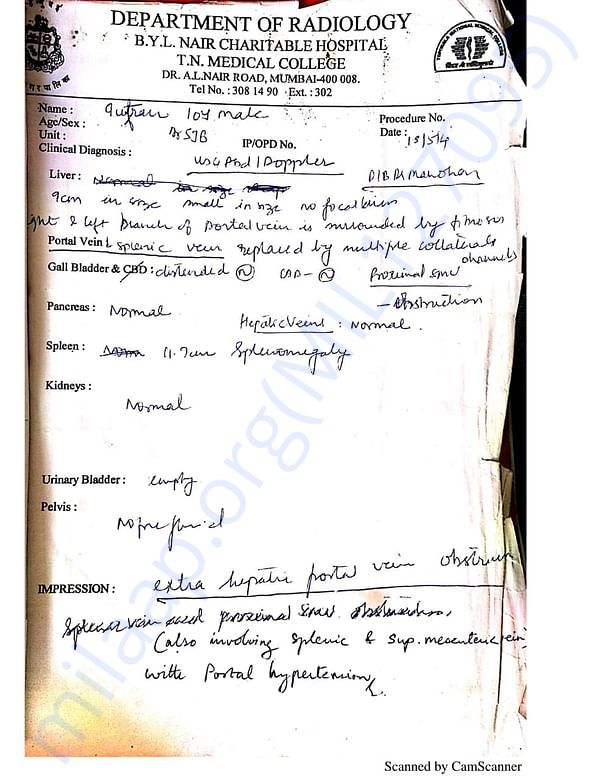 DEPARTMENT OF RADIOLOGY
B.Y.L. NAIR CHARITABLE HOSPITAL
T.N. MEDICAL COLLEGE
DR. A.L.NAIR ROAD, MUMBAI-400 008.
Tel No. : 308 14 90 Ext. : 302
Name : Gufran 10y male
Procedure No.
Age/Sex :
Unit : IP/OPD No. Date :
Clinical Diagnosis : USG Abd / Doppler
Liver : Normal in size D/B Dr Manohar
9cm in size small in size no focal lesion
right & left branch of portal vein is surrounded by fibrosis
Portal Vein & splenic vein replaced by multiple collaterals
channels
Gall Bladder & CBD : distended (N) CBD - (N) Proximal SMV
- obstruction
Pancreas : Normal
Hepatic Veins : Normal.
Spleen : 11.7cm Splenomegaly
Kidneys :
Normal
Urinary Bladder : empty
Pelvis :
No free fluid
IMPRESSION : extra hepatic portal vein obstruc
Splenic vein and proximal SMV obstruction.
(also involving splenic & sup. mesenteric vein
with Portal hypertension
milaap.org(MIL127095)
Scanned by CamScanner